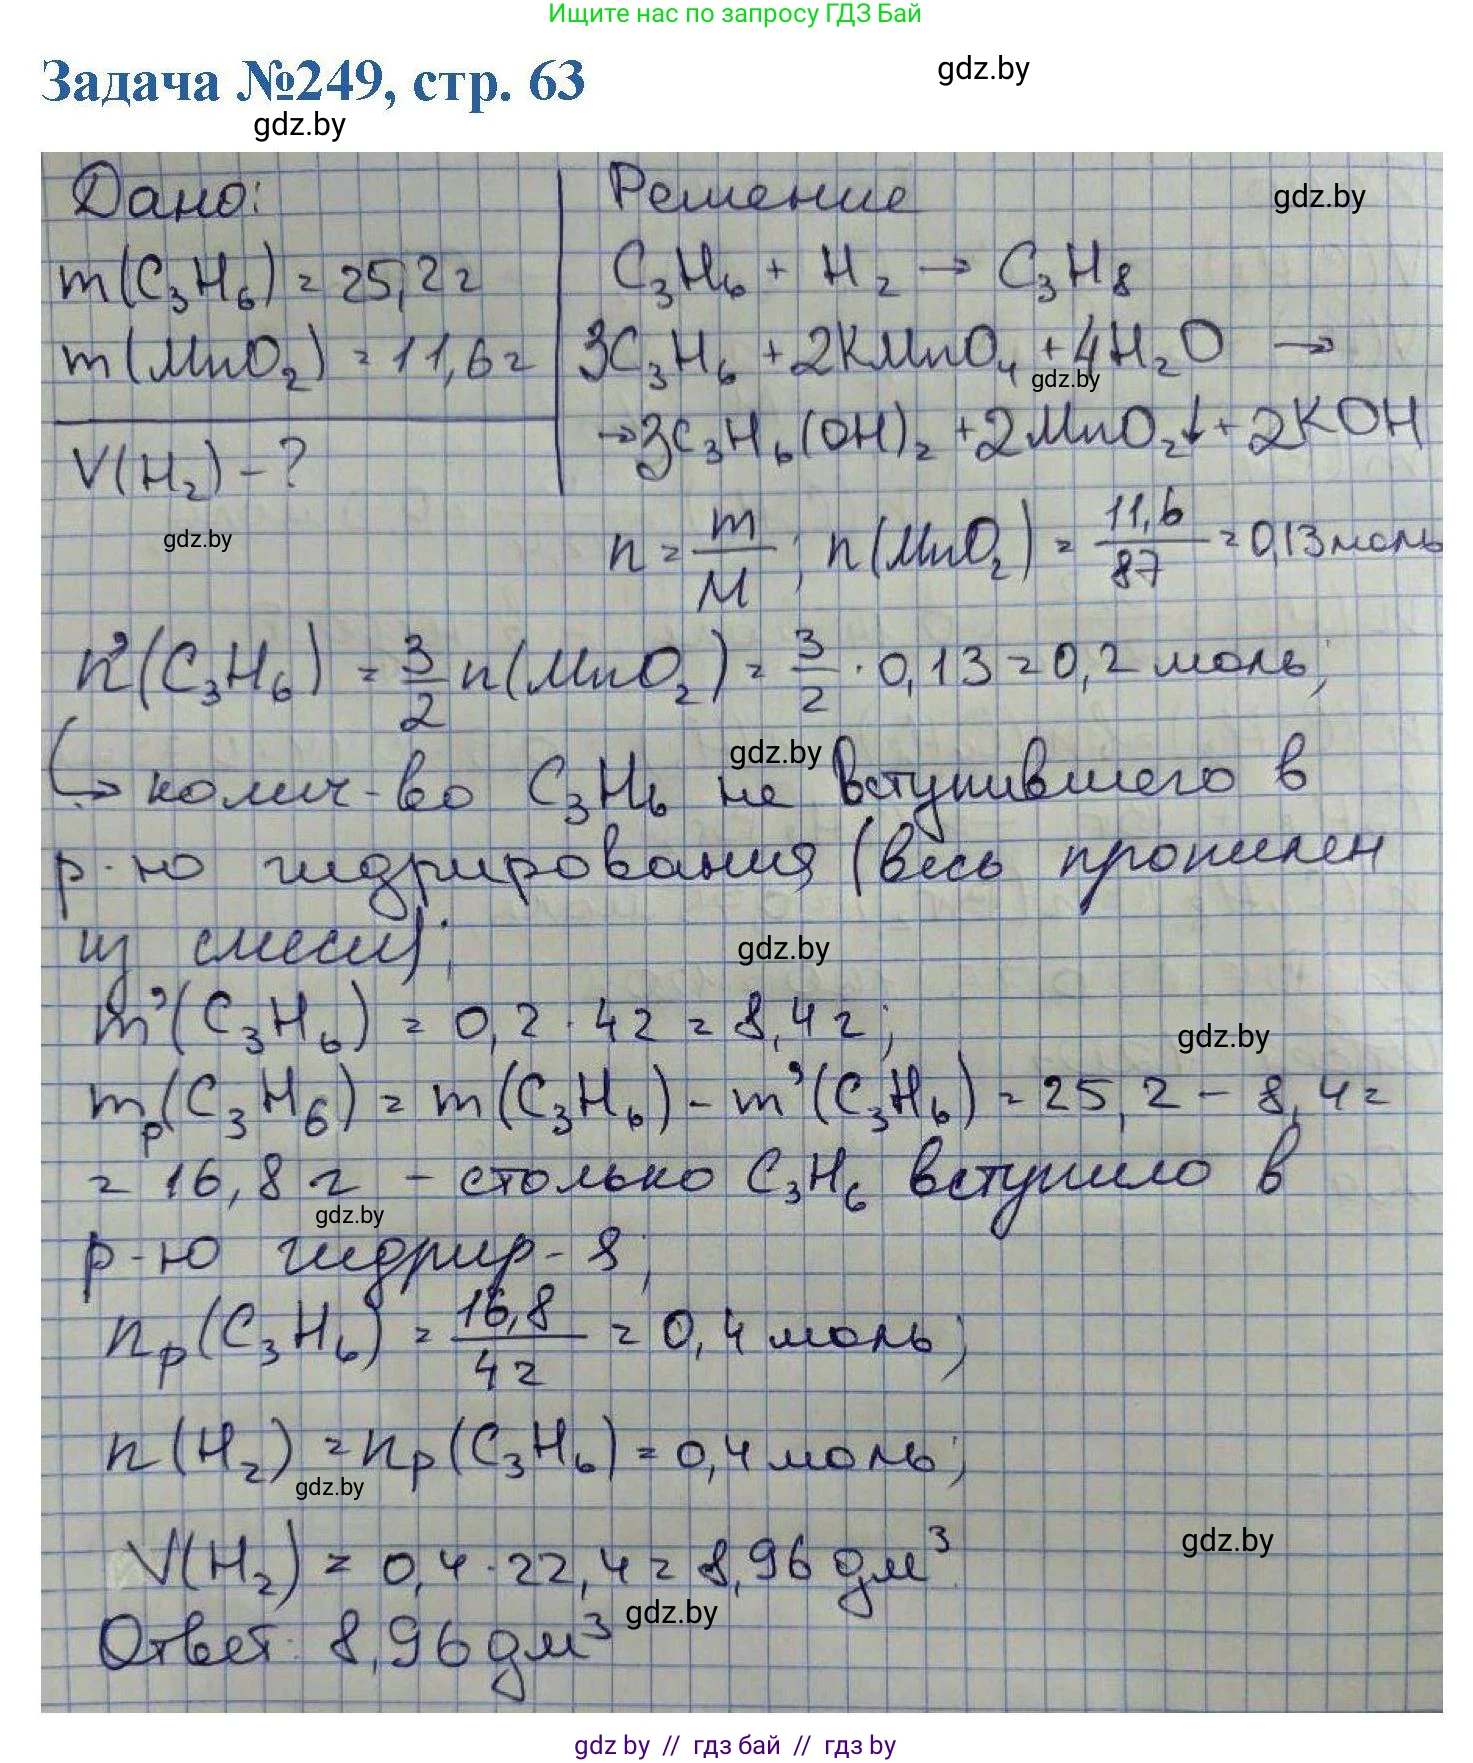 Ищите нас по запросу ГДЗ Бай
Задача №249, стр. 63
gdz.by
gdz.by
Дано:
m(C₃H₆) = 25,2 г
m(MnO₂) = 11,6 г
V(H₂) - ?
gdz.by
Решение
gdz.by
C₃H₆ + H₂ → C₃H₈
3C₃H₆ + 2KMnO₄ + 4H₂O →
gdz.by
→ 3C₃H₆(OH)₂ + 2MnO₂↓ + 2KOH
n = m/M ; n(MnO₂) = 11,6/87 = 0,13 моль
n'(C₃H₆) = 3/2 n(MnO₂) = 3/2 · 0,13 = 0,2 моль;
gdz.by
↳ колич-во C₃H₆ не вступившего в
р-ю гидрирования (весь пропилен
из смеси);
gdz.by
m'(C₃H₆) = 0,2 · 42 = 8,4 г;
gdz.by
mₚ(C₃H₆) = m(C₃H₆) - m'(C₃H₆) = 25,2 - 8,4 =
= 16,8 г - столько C₃H₆ вступило в
gdz.by
р-ю гидрир-я;
nₚ(C₃H₆) = 16,8/42 = 0,4 моль;
n(H₂) = nₚ(C₃H₆) = 0,4 моль;
gdz.by
V(H₂) = 0,4 · 22,4 = 8,96 дм³.
gdz.by
Ответ: 8,96 дм³
gdz.by
gdz by // гдз бай // гдз by